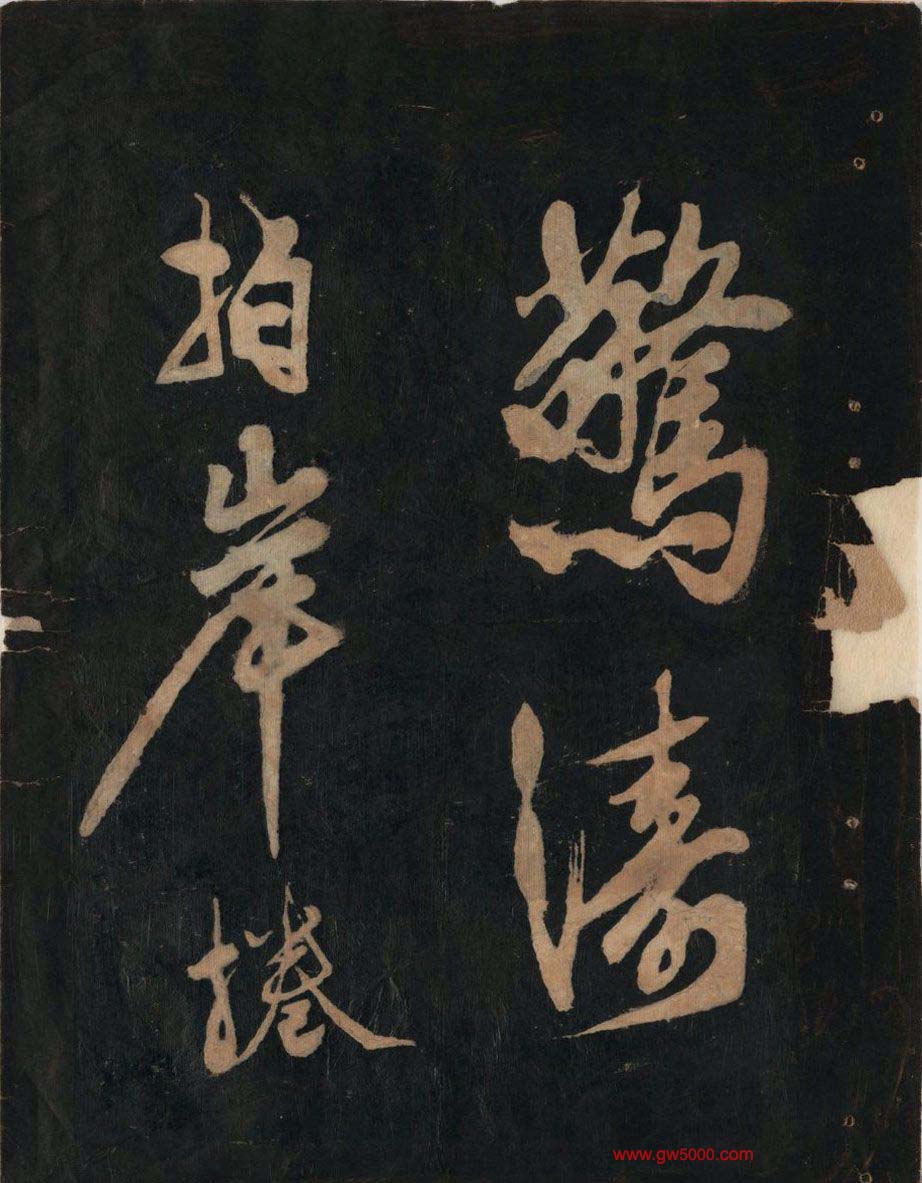 驚濤
拍岸捲
www.gw5000.com